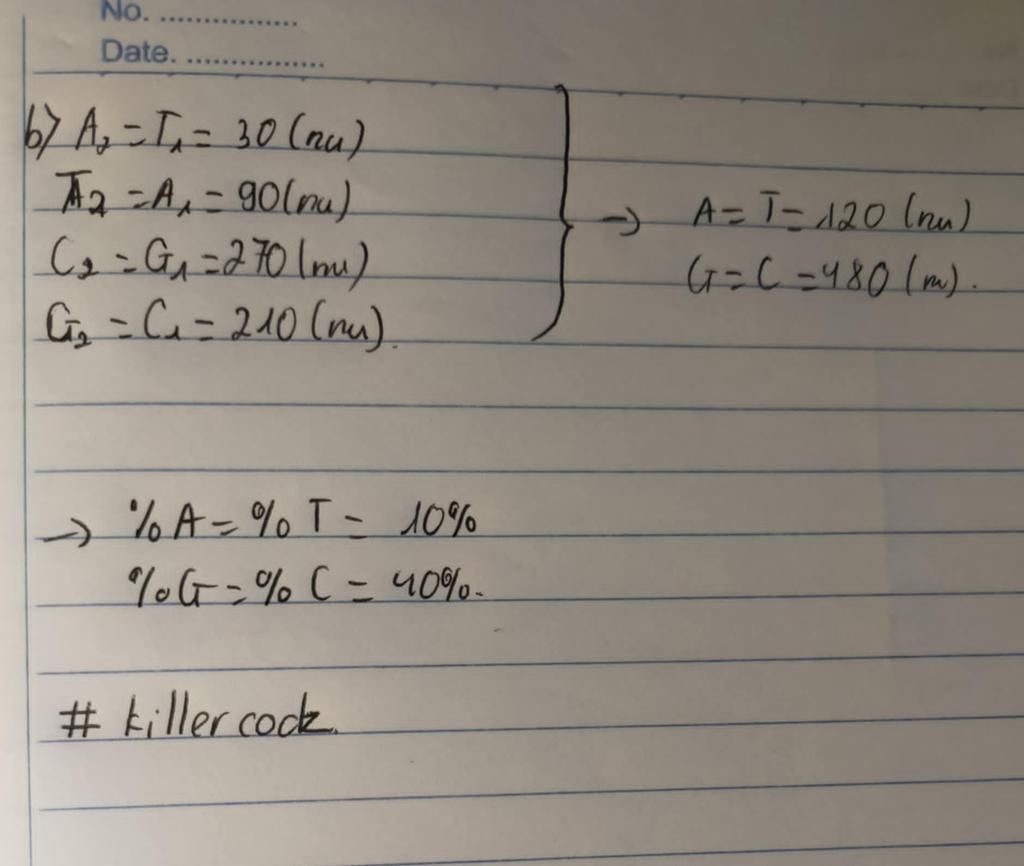 No. ...............
Date. ...............
b) A₂ = T₁ = 30 (nu)
T₂ = A₁ = 90 (nu)
C₂ = G₁ = 270 (nu)
G₂ = C₁ = 210 (nu).
→ A = T = 120 (nu)
G = C = 480 (nu).
→ %A = %T = 10%
%G = %C = 40%.
# killer cock.